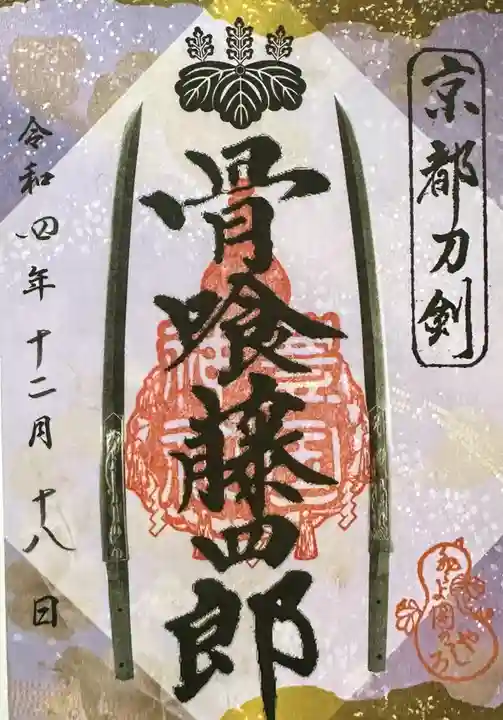 京都刀剣
骨喰藤四郎
令和四年十二月十八日
豊国神社